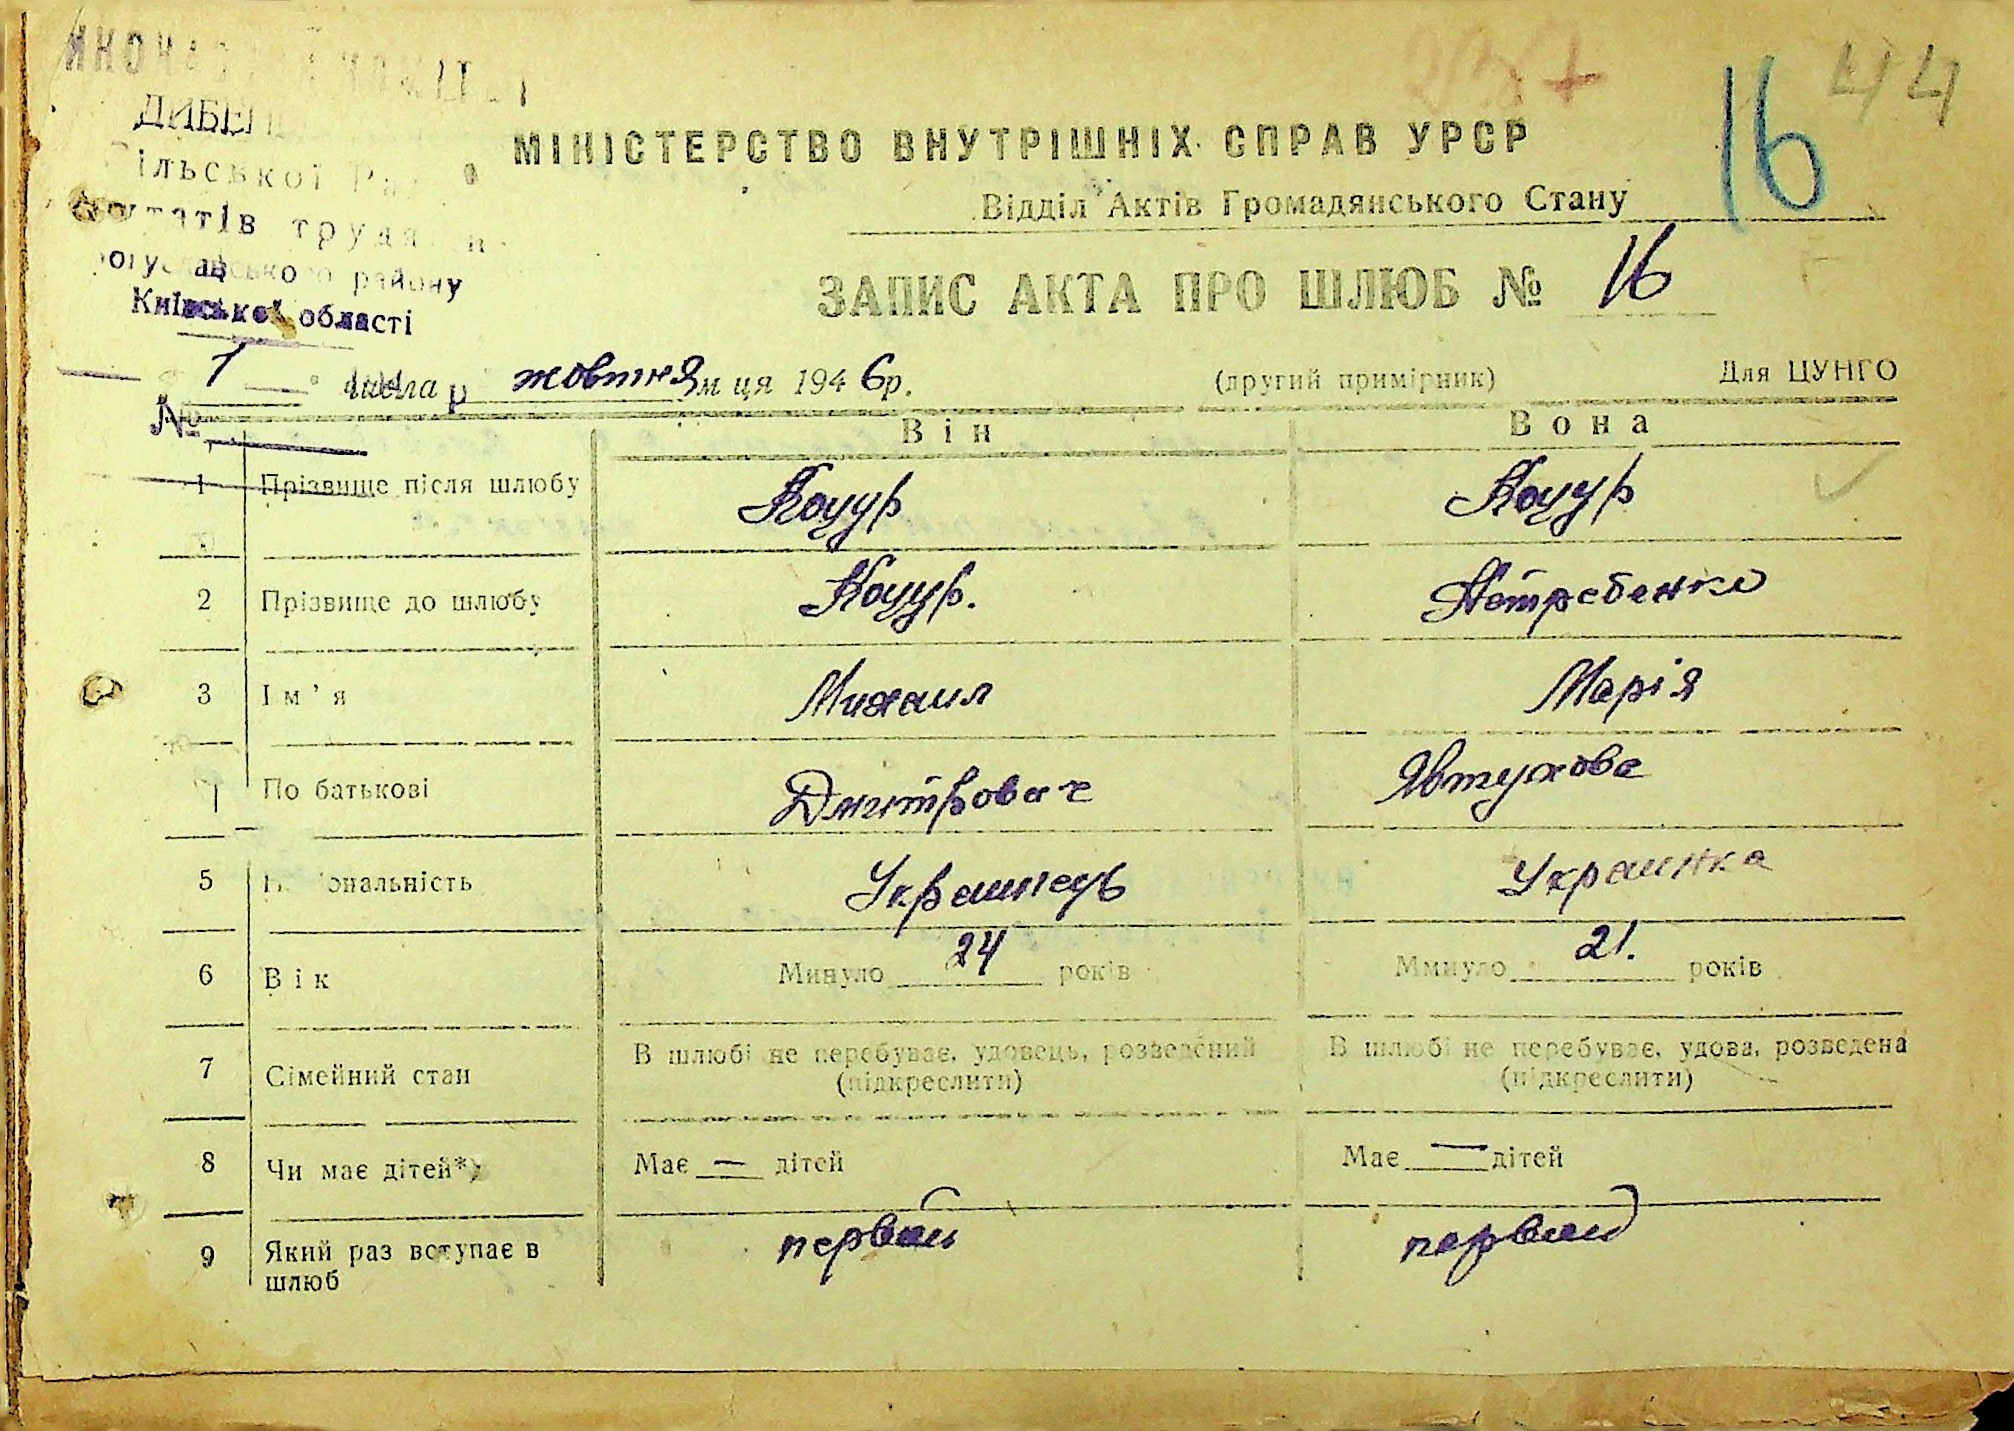 МІНІСТЕРСТВО ВНУТРІШНІХ СПРАВ УРСР
Відділ Актів Громадянського Стану
ЗАПИС АКТА ПРО ШЛЮБ № 16
16
44
Київської області
1 числа жовтня м ця 1946р.
(другий примірник)
Для ЦУНГО
№
Він Вона
1 Прізвище після шлюбу Коцур Коцур
2 Прізвище до шлюбу Коцур. Нетребенко
3 Ім'я Михаил Марія
По батькові Дмитрович Явтухова
5 Національність Украинець Украинка
6 Вік Минуло 24 років Минуло 21. років
7 Сімейний стан В шлюбі не перебуває, удовець, розведений (підкреслити) В шлюбі не перебуває, удова, розведена (підкреслити)
8 Чи має дітей*) Має — дітей Має — дітей
9 Який раз вступає в шлюб первый первый